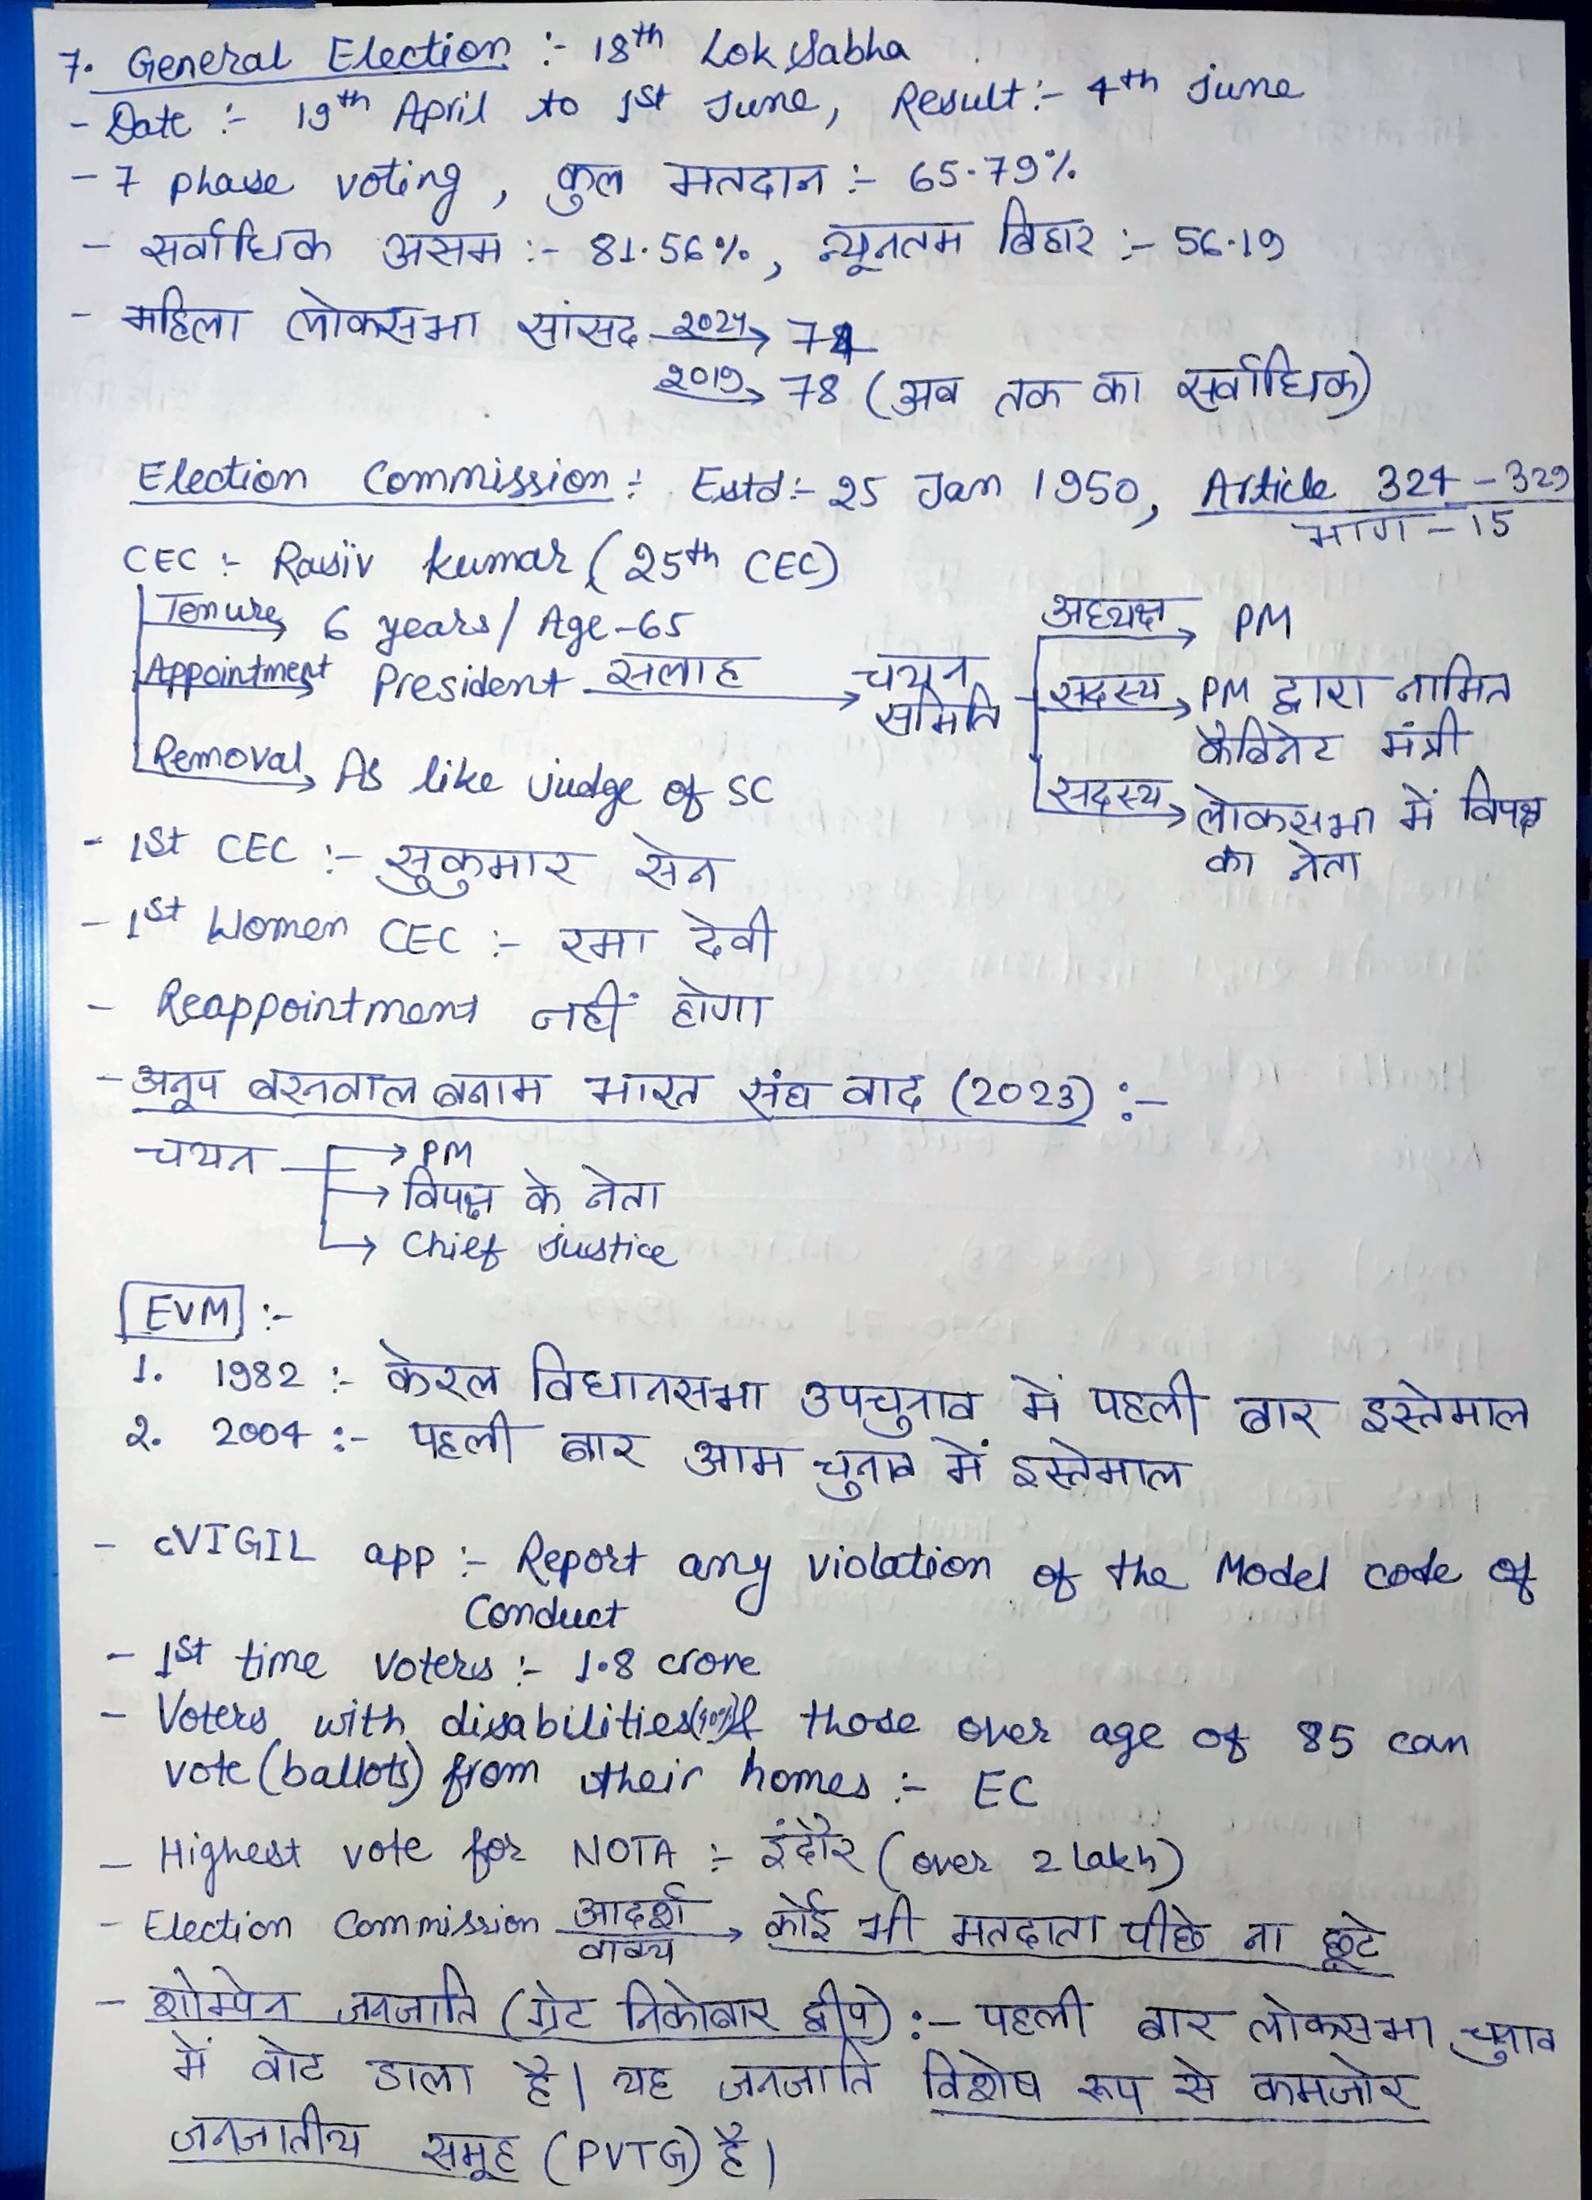 7. General Election :- 18th Lok Sabha
- Date :- 19th April to 1st June, Result :- 4th June
- 7 phase voting, कुल मतदान :- 65.79%
- सर्वाधिक असम :- 81.56%, न्यूनतम बिहार :- 56.19
- महिला लोकसभा सांसद 2024→ 74
2019→ 78 (अब तक का सर्वाधिक)
Election Commission :- Estd :- 25 Jan 1950, Article 324-329
भाग - 15
CEC :- Rajiv Kumar (25th CEC)
Tenure→ 6 years/Age-65
Appointment→ President सलाह→ चयन समिति
अध्यक्ष→ PM
सदस्य→ PM द्वारा नामित
कैबिनेट मंत्री
सदस्य→ लोकसभा में विपक्ष
का नेता
Removal→ As like judge of SC
- 1st CEC :- सुकुमार सेन
- 1st Women CEC :- रमा देवी
- Reappointment नहीं होगा
- अनूप बरनवाल बनाम भारत संघ वाद (2023) :-
चयन → PM
→ विपक्ष के नेता
→ Chief Justice
EVM :-
1. 1982 :- केरल विधानसभा उपचुनाव में पहली बार इस्तेमाल
2. 2004 :- पहली बार आम चुनाव में इस्तेमाल
- cVIGIL app :- Report any violation of the Model code of
Conduct
- 1st time voters :- 1.8 crore
- Voters with disabilities(40%)& those over age of 85 can
vote (ballots) from their homes :- EC
- Highest vote for NOTA :- इंदौर (over 2 lakh)
- Election Commission आदर्श वाक्य→ कोई भी मतदाता पीछे ना छूटे
- शोम्पेन जनजाति (ग्रेट निकोबार द्वीप) :- पहली बार लोकसभा चुनाव
में वोट डाला है। यह जनजाति विशेष रूप से कमजोर
जनजातीय समूह (PVTG) है।